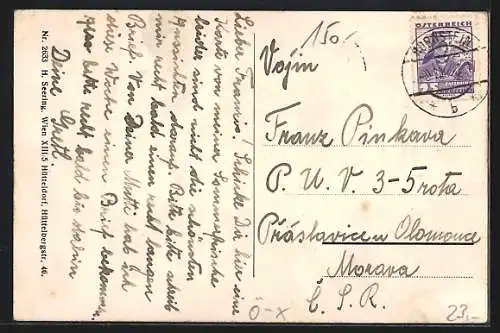 Nr. 2633 H. Seering, Wien XIII/5 Hütteldorf, Hüttelbergstr. 46.
Lieber Franzi! Schicke Dir hier eine
Karte von meiner Sommerfrische
leider sind nicht die schönsten
Aussichten darauf. Bitte bitte schreib
mir recht bald einen recht langen
Brief. Von Deiner Mutti hab ich
diese Woche einen Brief bekommen.
bitte recht bald
Deine Gretl.
150
ÖSTERREICH
Vojín
Franz Pinkava
P. U. V. 3-5 rota
Přáslavice u Olomouce
Morava
Č. S. R.
0-X
23,-